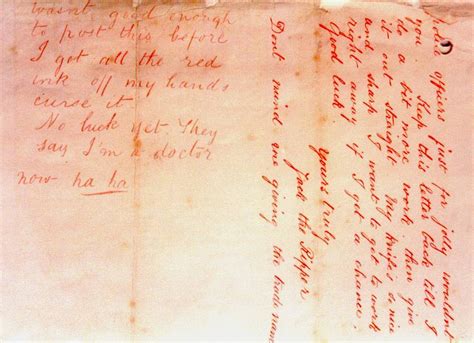 police officers just for jolly wouldnt
you. Keep this letter back till I
do a bit more work, then give
it out straight My knife's so nice
and sharp I want to get to work
right away if I get a chance.
Good luck.
yours truly
Jack the Ripper
Dont mind me giving the trade name
wasnt good enough
to post this before
I got all the red
ink off my hands
curse it
No luck yet. They
say I'm a doctor
now ha ha